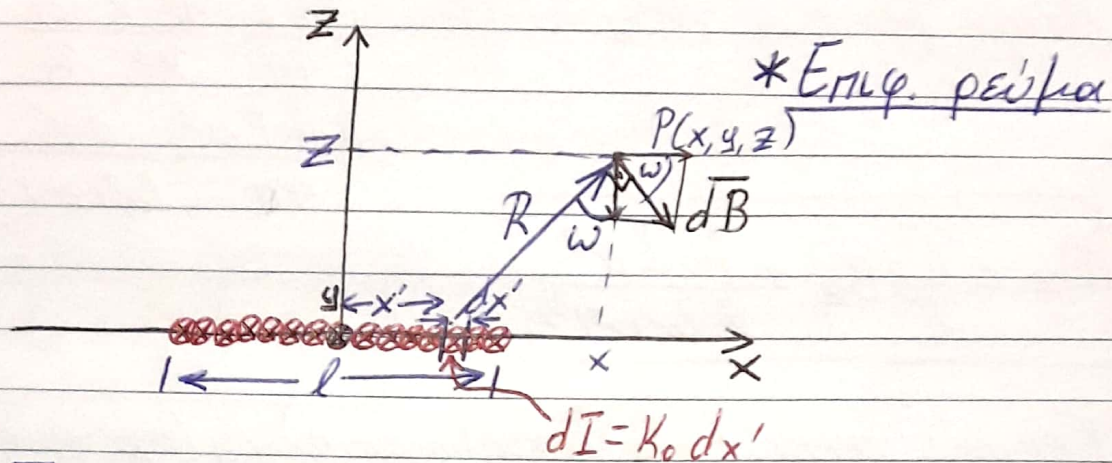 z
*Επιφ. ρεύμα
P(x, y, z)
z
ω
R
dB̅
ω
y
x'
dx'
x
x
l
dI = K₀ dx'